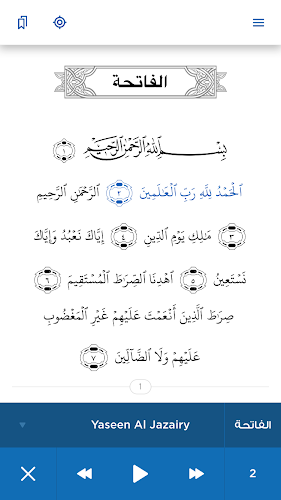 الفاتحة
بِسْمِ ٱللَّهِ ٱلرَّحْمَٰنِ ٱلرَّحِيمِ ١
ٱلْحَمْدُ لِلَّهِ رَبِّ ٱلْعَٰلَمِينَ ٢ ٱلرَّحْمَٰنِ ٱلرَّحِيمِ
٣ مَٰلِكِ يَوْمِ ٱلدِّينِ ٤ إِيَّاكَ نَعْبُدُ وَإِيَّاكَ
نَسْتَعِينُ ٥ ٱهْدِنَا ٱلصِّرَٰطَ ٱلْمُسْتَقِيمَ ٦
صِرَٰطَ ٱلَّذِينَ أَنْعَمْتَ عَلَيْهِمْ غَيْرِ ٱلْمَغْضُوبِ
عَلَيْهِمْ وَلَا ٱلضَّآلِّينَ ٧
1
Yaseen Al Jazairy الفاتحة
2